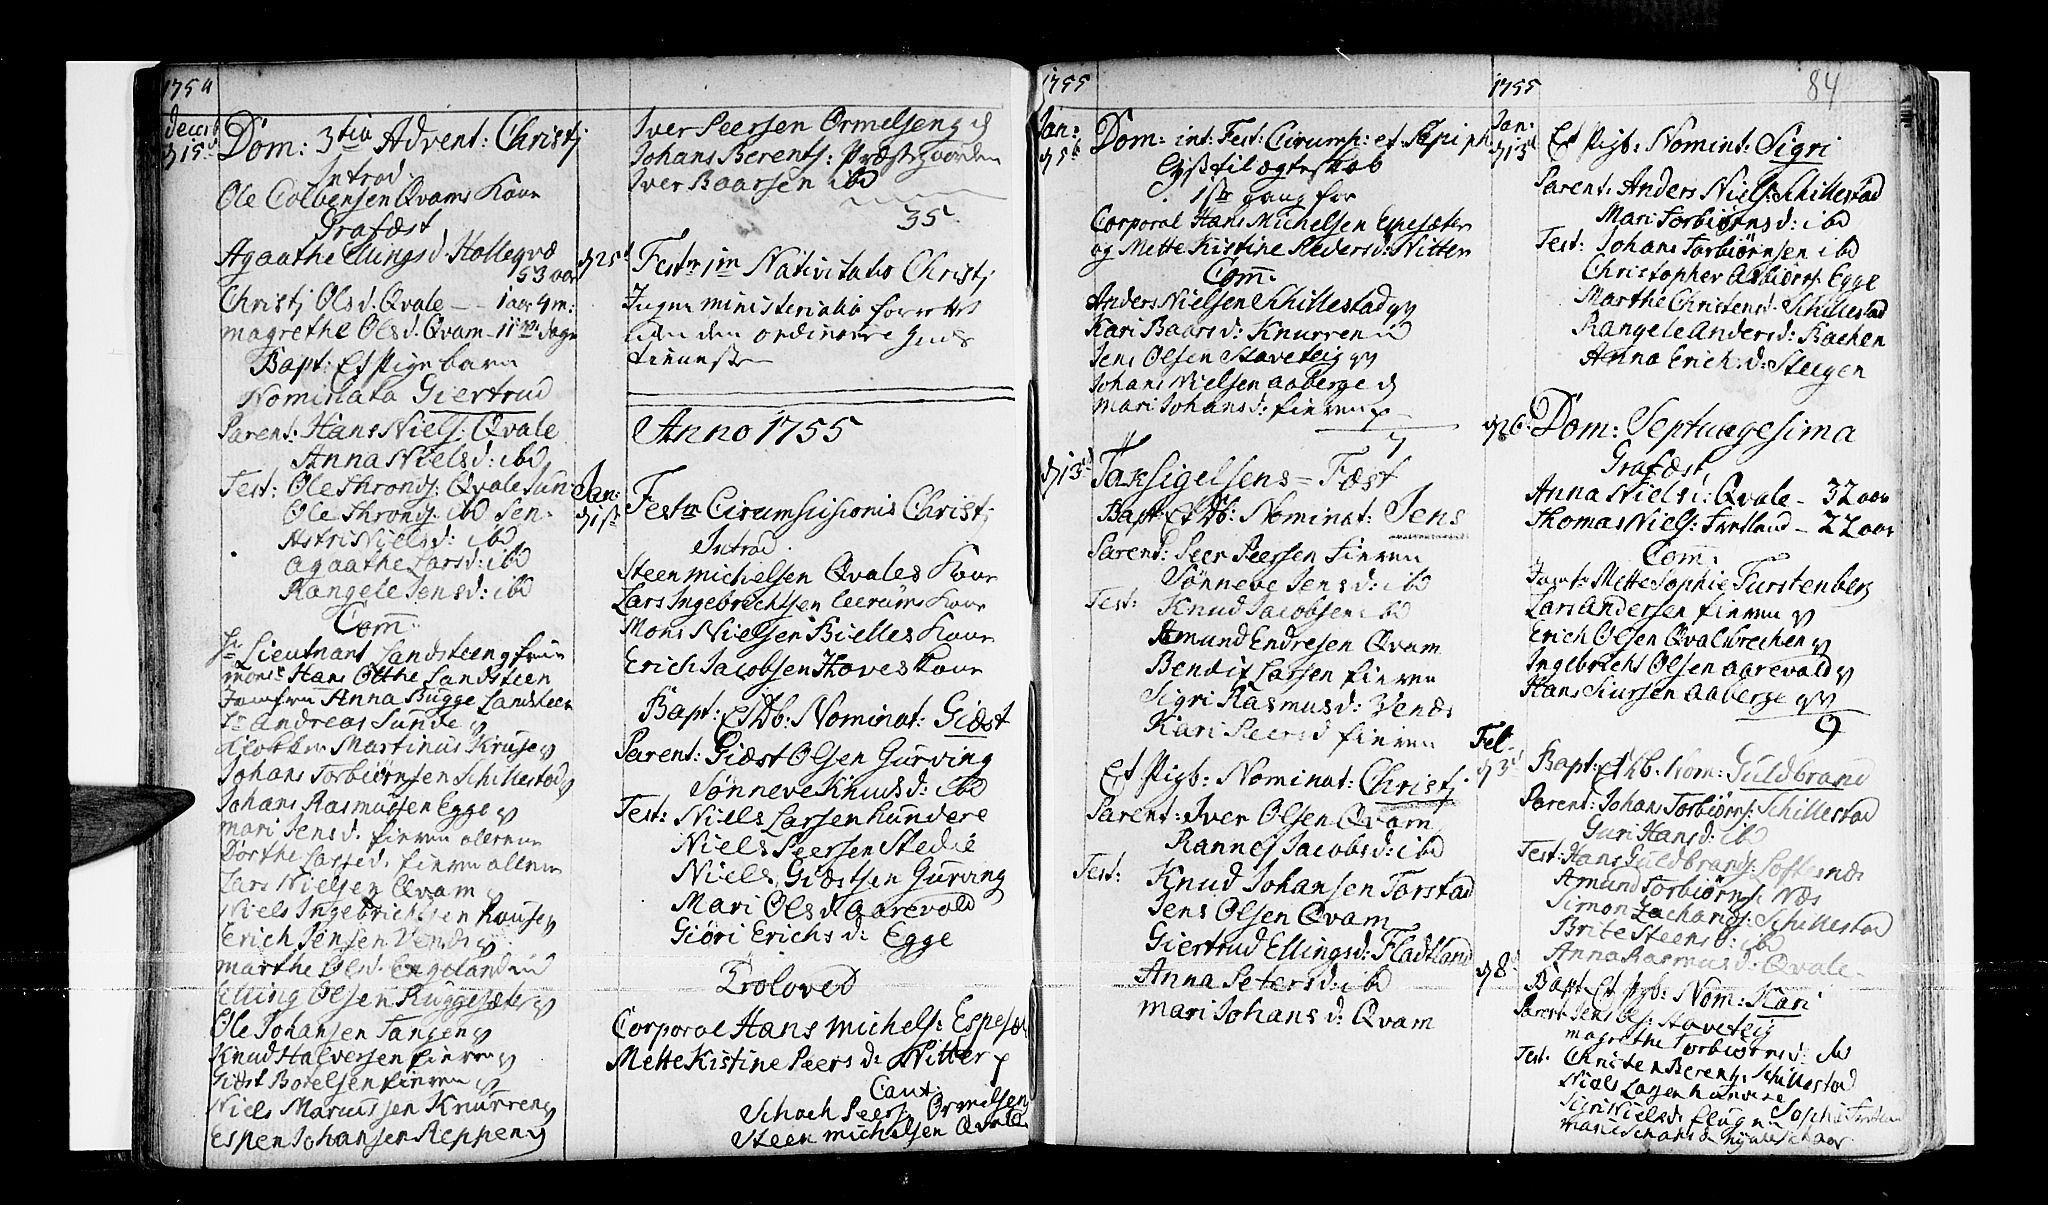 1754
Decemb
d 15d
Dom: 3tia Advent: Christj
Introd.
Ole Colbensen Qvams Kone
Grafæst
Agaathe Ellingsd. Holleqvæ
53 aar
Christj Olsd. Qvale — 1 aar 4 m:
Magrethe Olsd. Qvam - 11 Dage
Bapt: Et Pigebarn
Nominata Giertrud
Parent: Hans Niels: Qvale
Anna Nielsd: ibd
Test: Ole Thronds: Qvale Jun
Ole Thronds: ibd Sen.
Astri Nielsd: ibd
Agaathe Larsd: ibd
Rangele Jensd: ibd
Com:
Hr Lieutnant Landsteen & frue
Mons: Hans Otthe Landsteen
Jomfru Anna Bugge Landsteen
Sr Andreas Sunde
Martinus Kruse
Johans Torbiørnsen Schillestad
Johans Rasmussen Egge
Mari Jensd: finven allerne
Dorthe Larsd. finven allene
Lars Nielsen Qvam
Niels Ingebrichtsen
Erich Jensen Vendæ
Marthe Olsd. Engeland
Elling Olsen Ruggesæter
Ole Johansen Tangen
Knud Halversen finven
Giæst Botelsen finven
Niels Marcussen Knurren
Espen Johansen Reppen
Iver Peersen Ormelseng
Johans Berents: Præstegaarden
Iver Baarsen ibd
35.
d 25d
Festo 1mo Nativitatis Christj
Ingen ministerialia forrettet
uden den ordinaire Guds
tieneste
Anno 1755
Jan:
d 1ste
Festo Cirumscisionis Christj
Introd.
Steen Michelsen Qvales Kone
Lars Ingebrechtsen Kone
Mons Nielsen Bielles Kone
Erich Jacobsen Hoves Kone
Bapt: Et Db: Nominat: Giæst
Parent: Giæst Olsen Gurving
Sønneve Knudsd: ibd
Test: Niels Larsen Hundere
Niels Peersen Stedie
Niels Giæstsen Gurving
Mari Olsd. Aarevold
Giøri Erichsd: Egge
Troloved
Corporal Hans Michels: Espesæt
Mette Kistine Peersd: Nitter
Caut:
Schach Peers: Ormelsen
Steen Michelsen Qvale
1755
Jan:
d 5te
Dom: int: Fest: Cirump: et Epiph
Lyst til Egteskab
1ste gang for
Corporal Hans Michelsen Espesæter
og Mette Kistine Pedersd: Nitter
Com:
Anders Nielsen Schillestad
Kari Baarsd: Knurren
Jens Olsen Staveteig
Johans Nielsen Aaberge
Mari Johansd: finven
7
d 13d
Taksigelsens = Fæst
Bapt: Et Db: Nominat: Jens
Parent: Peer Peersen finven
Sønneve Jensd: ibd
Test: Knud Jacobsen ibd
Amund Endresen Qvam
Bendix Larsen finven
Sigri Rasmusd: Vendæ
Kari Peersd finven
Et Pigb: Nominat: Christj
Parent: Iver Olsen Qvam
Rannej Jacobsd: ibd
Test: Knud Johansen Torstad
Jens Olsen Qvam
Giertrud Ellingsd: Fladtland
Anna Petersd: ibd
Mari Johansd: Qvam
1755
84
Jan:
d 13d
Et Pigb: Nomint: Sigri
Parent: Anders Niels: Schillestad
Mari Torbiørnsd: ibd
Test: Johans Torbiørnsen ibd
Christopher Asbiørs: Egge
Marthe Christensd. Schillestad
Rangele Andersd: Bachen
Anna Erichsd: Steegen
d 26.
Dom: Septuagesima
Grafæst
Anna Nielsd: Qvale — 32 aar
Thomas Niels: Fretland — 22 aar
Com:
Jomfr Mette Sophie Furstenberg
Lars Andersen finven
Erich Olsen Qvalbrechen
Ingebricht Olsen Aarevold
Hans Siursen Aaberge
9
Feb.
d 3d
Bapt: Et Db. Nom: Guldbrand
Parent: Johan Torbiørns: Schillestad
Guri Hansd: ibd
Test: Hans Guldbrands: Softesnæs
Amund Torbiørns: Næs
Simon Zachariæs: Schillestad
Brite Steensd: ibd
Anna Rasmusd: Qvale
d 8d
Bapt: Et Pgb: Nom: Kari
Parent: Jens Ols: Staveteig
Magrethe Torbiørnsd: ibd
Test: Christen Berents: Schillestad
Niels Larsen Hundere
Sigri Nielsd:
Marie Johansd: